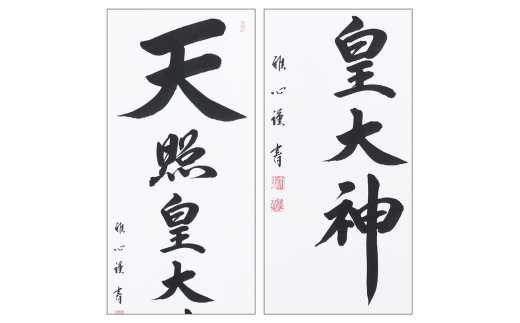 天照皇大
雅心謹書
皇大神
雅心謹書